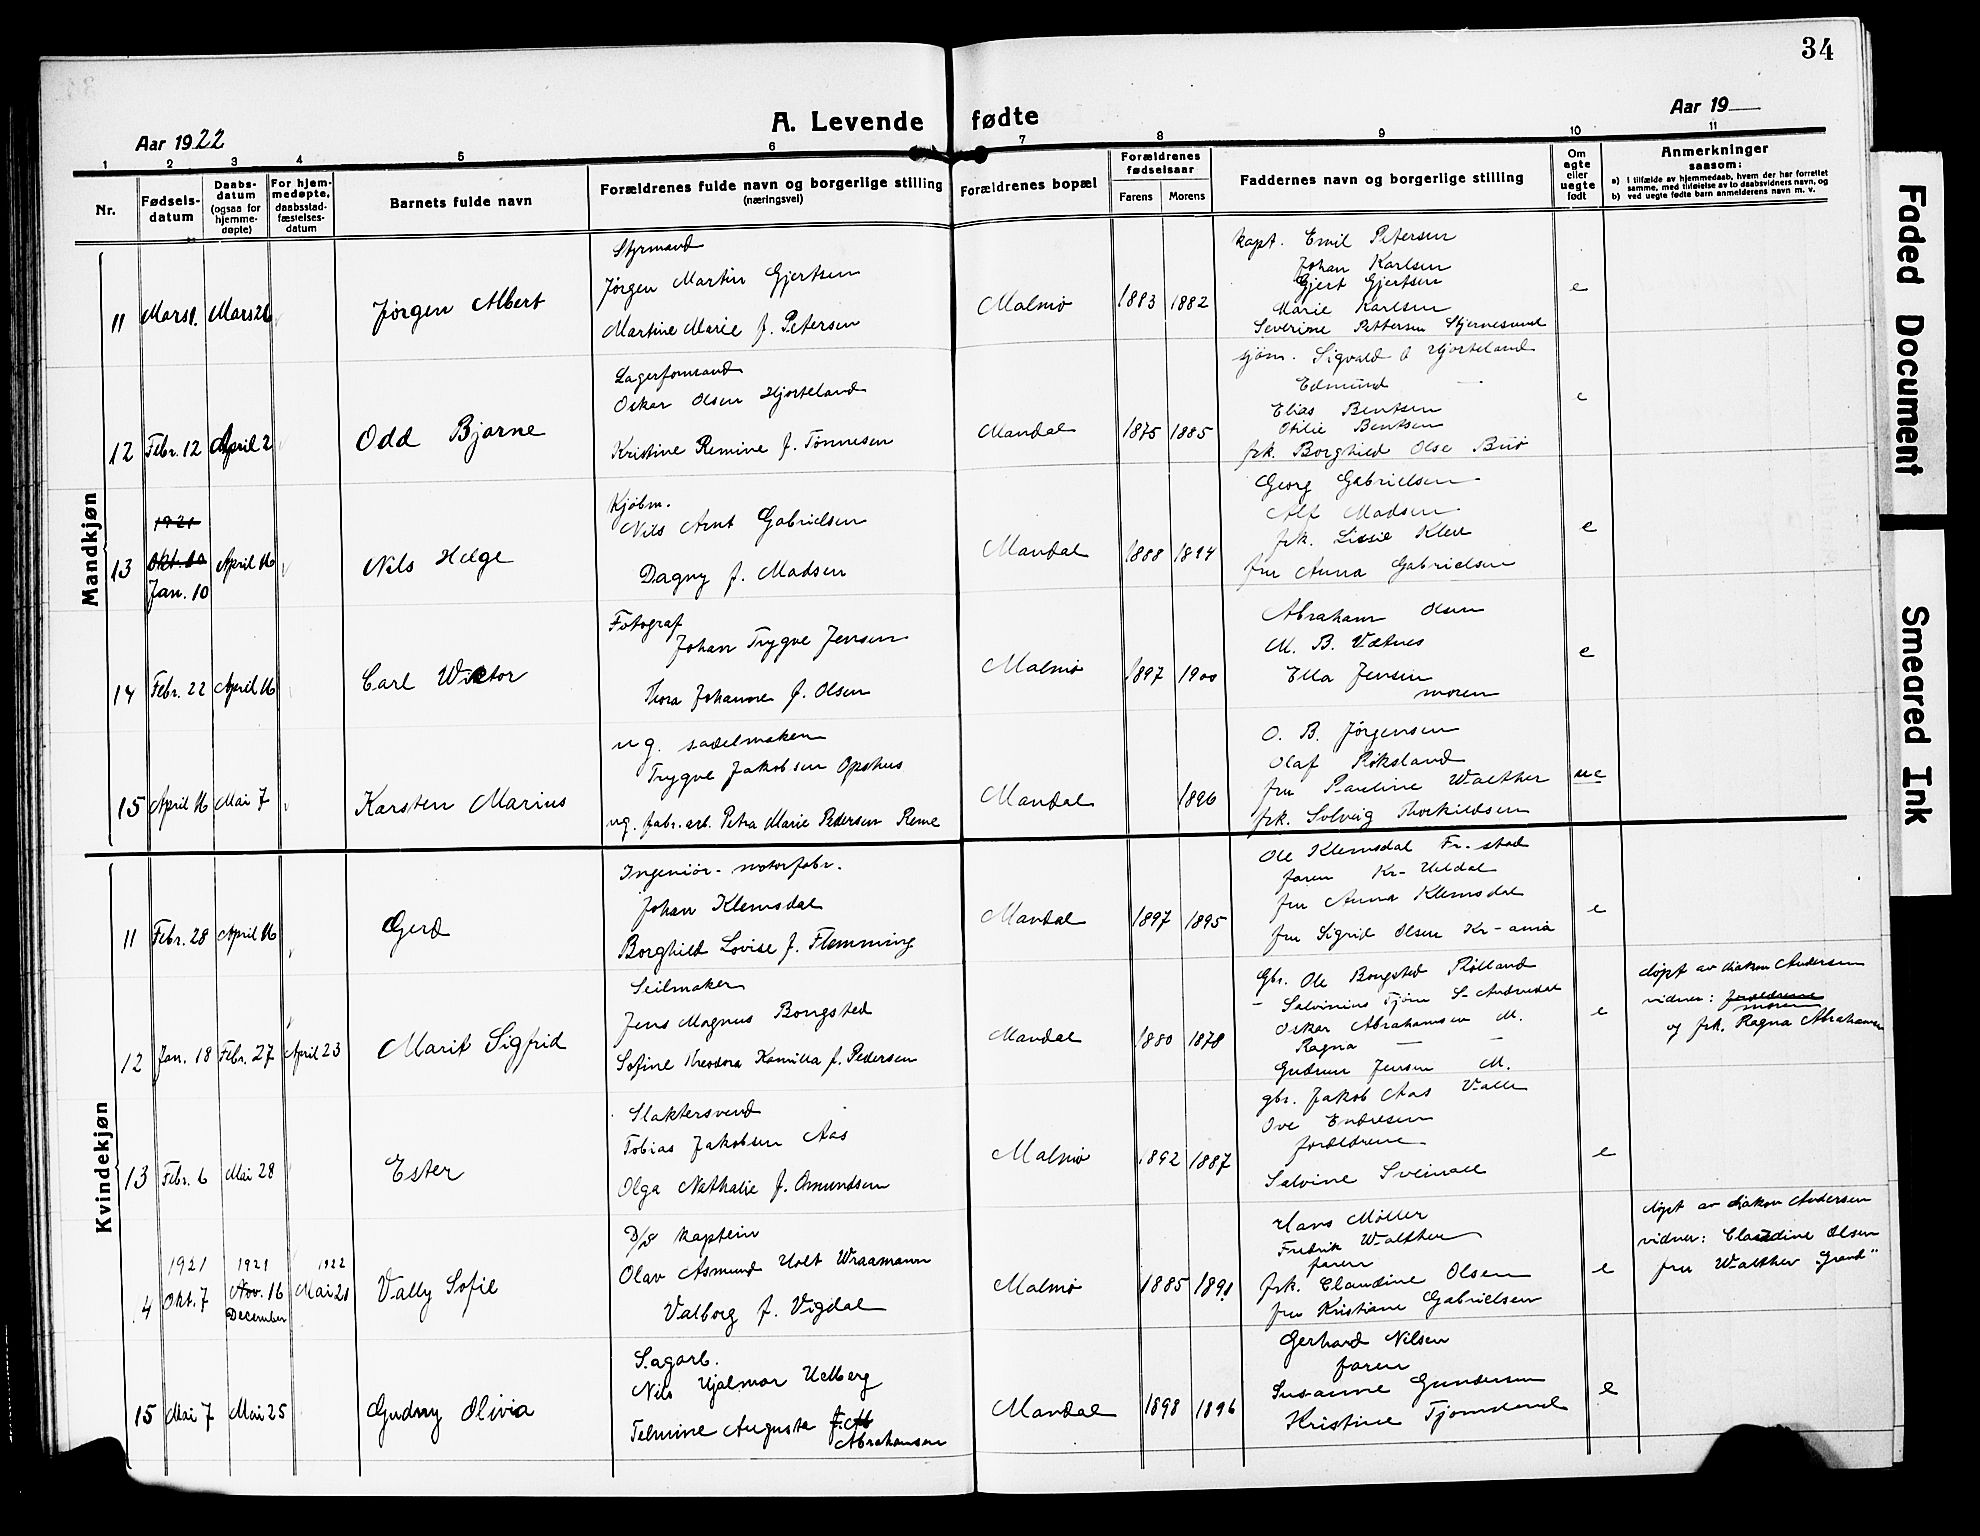 34
Aar 1922
A. Levende fødte
Aar 19
1 2 3 4 5 6 7 8 9 10 11
Nr.
Fødsels-
datum
Daabs-
datum
(ogsaa for
hjemme-
døpte)
For hjem-
medøpte,
daabsstad-
fæstelses-
datum
Barnets fulde navn
Forældrenes fulde navn og borgerlige stilling
(næringsvei)
Forældrenes bopæl
Forældrenes
fødselsaar
Farens Morens
Faddernes navn og borgerlige stilling
Om
egte
eller
uegte
født
Anmerkninger
saasom:
a) I tilfælde av hjemmedaab, hvem der har forrettet
samme, med tilføielse av to daabsvidners navn, og
b) ved uegte fødte barn anmelderens navn m. v.
Mandkjøn
11 Mars 1. Mars 26
Jørgen Albert
Styrmand
Jørgen Martin Gjertsen
Martine Marie f. Petersen
Malmø 1883 1882
kapt. Emil Petersen
Johan Karlsen
Gjert Gjertsen
Marie Karlsen
Severine Pettersen Stjernesund
e
12 Febr. 12 April 2
Odd Bjarne
Lagerformand
Oskar Olsen Hjorteland
Kristine Remine f. Tønnesen
Mandal 1875 1885
sjøm. Sigvald O Hjorteland
Edmund —
Elias Bentsen
Otilie Bentsen
frk. Borghild Olse
e
13
1921
Okt.
Jan. 10
April 16
Nils Helge
Kjøbm.
Nils Arnt Gabrielsen
Dagny f. Madsen
Mandal 1888 1894
Georg Gabrielsen
Alf Madsen
frk. Lissie Klev
fru Anna Gabrielsen
e
14 Febr. 22 April 16
Carl Wictor
Fotograf
Johan Trygve Jensen
Thora Johanne f. Olsen
Malmø 1897 1900
Abraham Olsen
M. B. Vetnes
Ella Jensen
moren
e
15 April 16 Mai 7
Karsten Marius
ug. sadelmaker
Trygve Jakobsen Opshus
ug. fabr.arb. Petra Marie Pedersen Reme
Mandal 1896
O. B. Jørgensen
Olaf Røksland
fru Pauline Walther
frk. Solveig Thorkildsen
ue
Kvindekjøn
11 Febr. 28 April 16
Gerd
Ingeniør - motorfabr.
Johan Klemsdal
Borghild Lovise f. Flemming
Mandal 1897 1895
Ole Klemsdal Fr.-stad
faren
fru Anna Klemsdal
fru Sigrid Olsen Kr-ania
e
12 Jan. 18 Febr. 27 April 23
Marit Sigfrid
Seilmaker
Jens Magnus Bongsted
Sofine Theodora Kamilla f. Pedersen
Mandal 1880 1878
Gbr. Ole Bongsted
— Salvinius Tjøm S-Audnedal
Oskar Abrahamsen M.
Ragna — —
Gudrun Jensen M.
e
døpt av diakon Andersen
vidner: forældrene
moren
og frk. Ragna Abrahamsen
13 Febr. 6 Mai 28
Ester
Slaktersvend
Tobias Jakobsen Aas
Olga Nathalie f. Omundsen
Malmø 1892 1887
gbr. Jakob Aas Valle
Ove Endresen
forældrene
Salvine Sveinall
e
1921 1921 1922
4 Okt. 7 Nov. 16 Mai 21
December
Vally Sofie
D/S kaptein
Olav Asmund Holt Wraamann
Valborg f. Vigdal
Malmø 1885 1891
Hans Møller
Fredrik Walther
faren
frk. Claudine Olsen
fru Kristiane Gabrielsen
e
døpt av diakon Andersen
vidner: Claudine Olsen
fru Walther "Grand"
15 Mai 7 Mai 25
Gudny Olivia
Sagarb.
Nils Hjalmar Hedberg
Telmine Auguste f. Ab
Abrahamsen
Mandal 1898 1896
Gerhard Nilsen
faren
Susanne Gundersen
Kristine Tjomsland
e
Faded Document
Smeared Ink